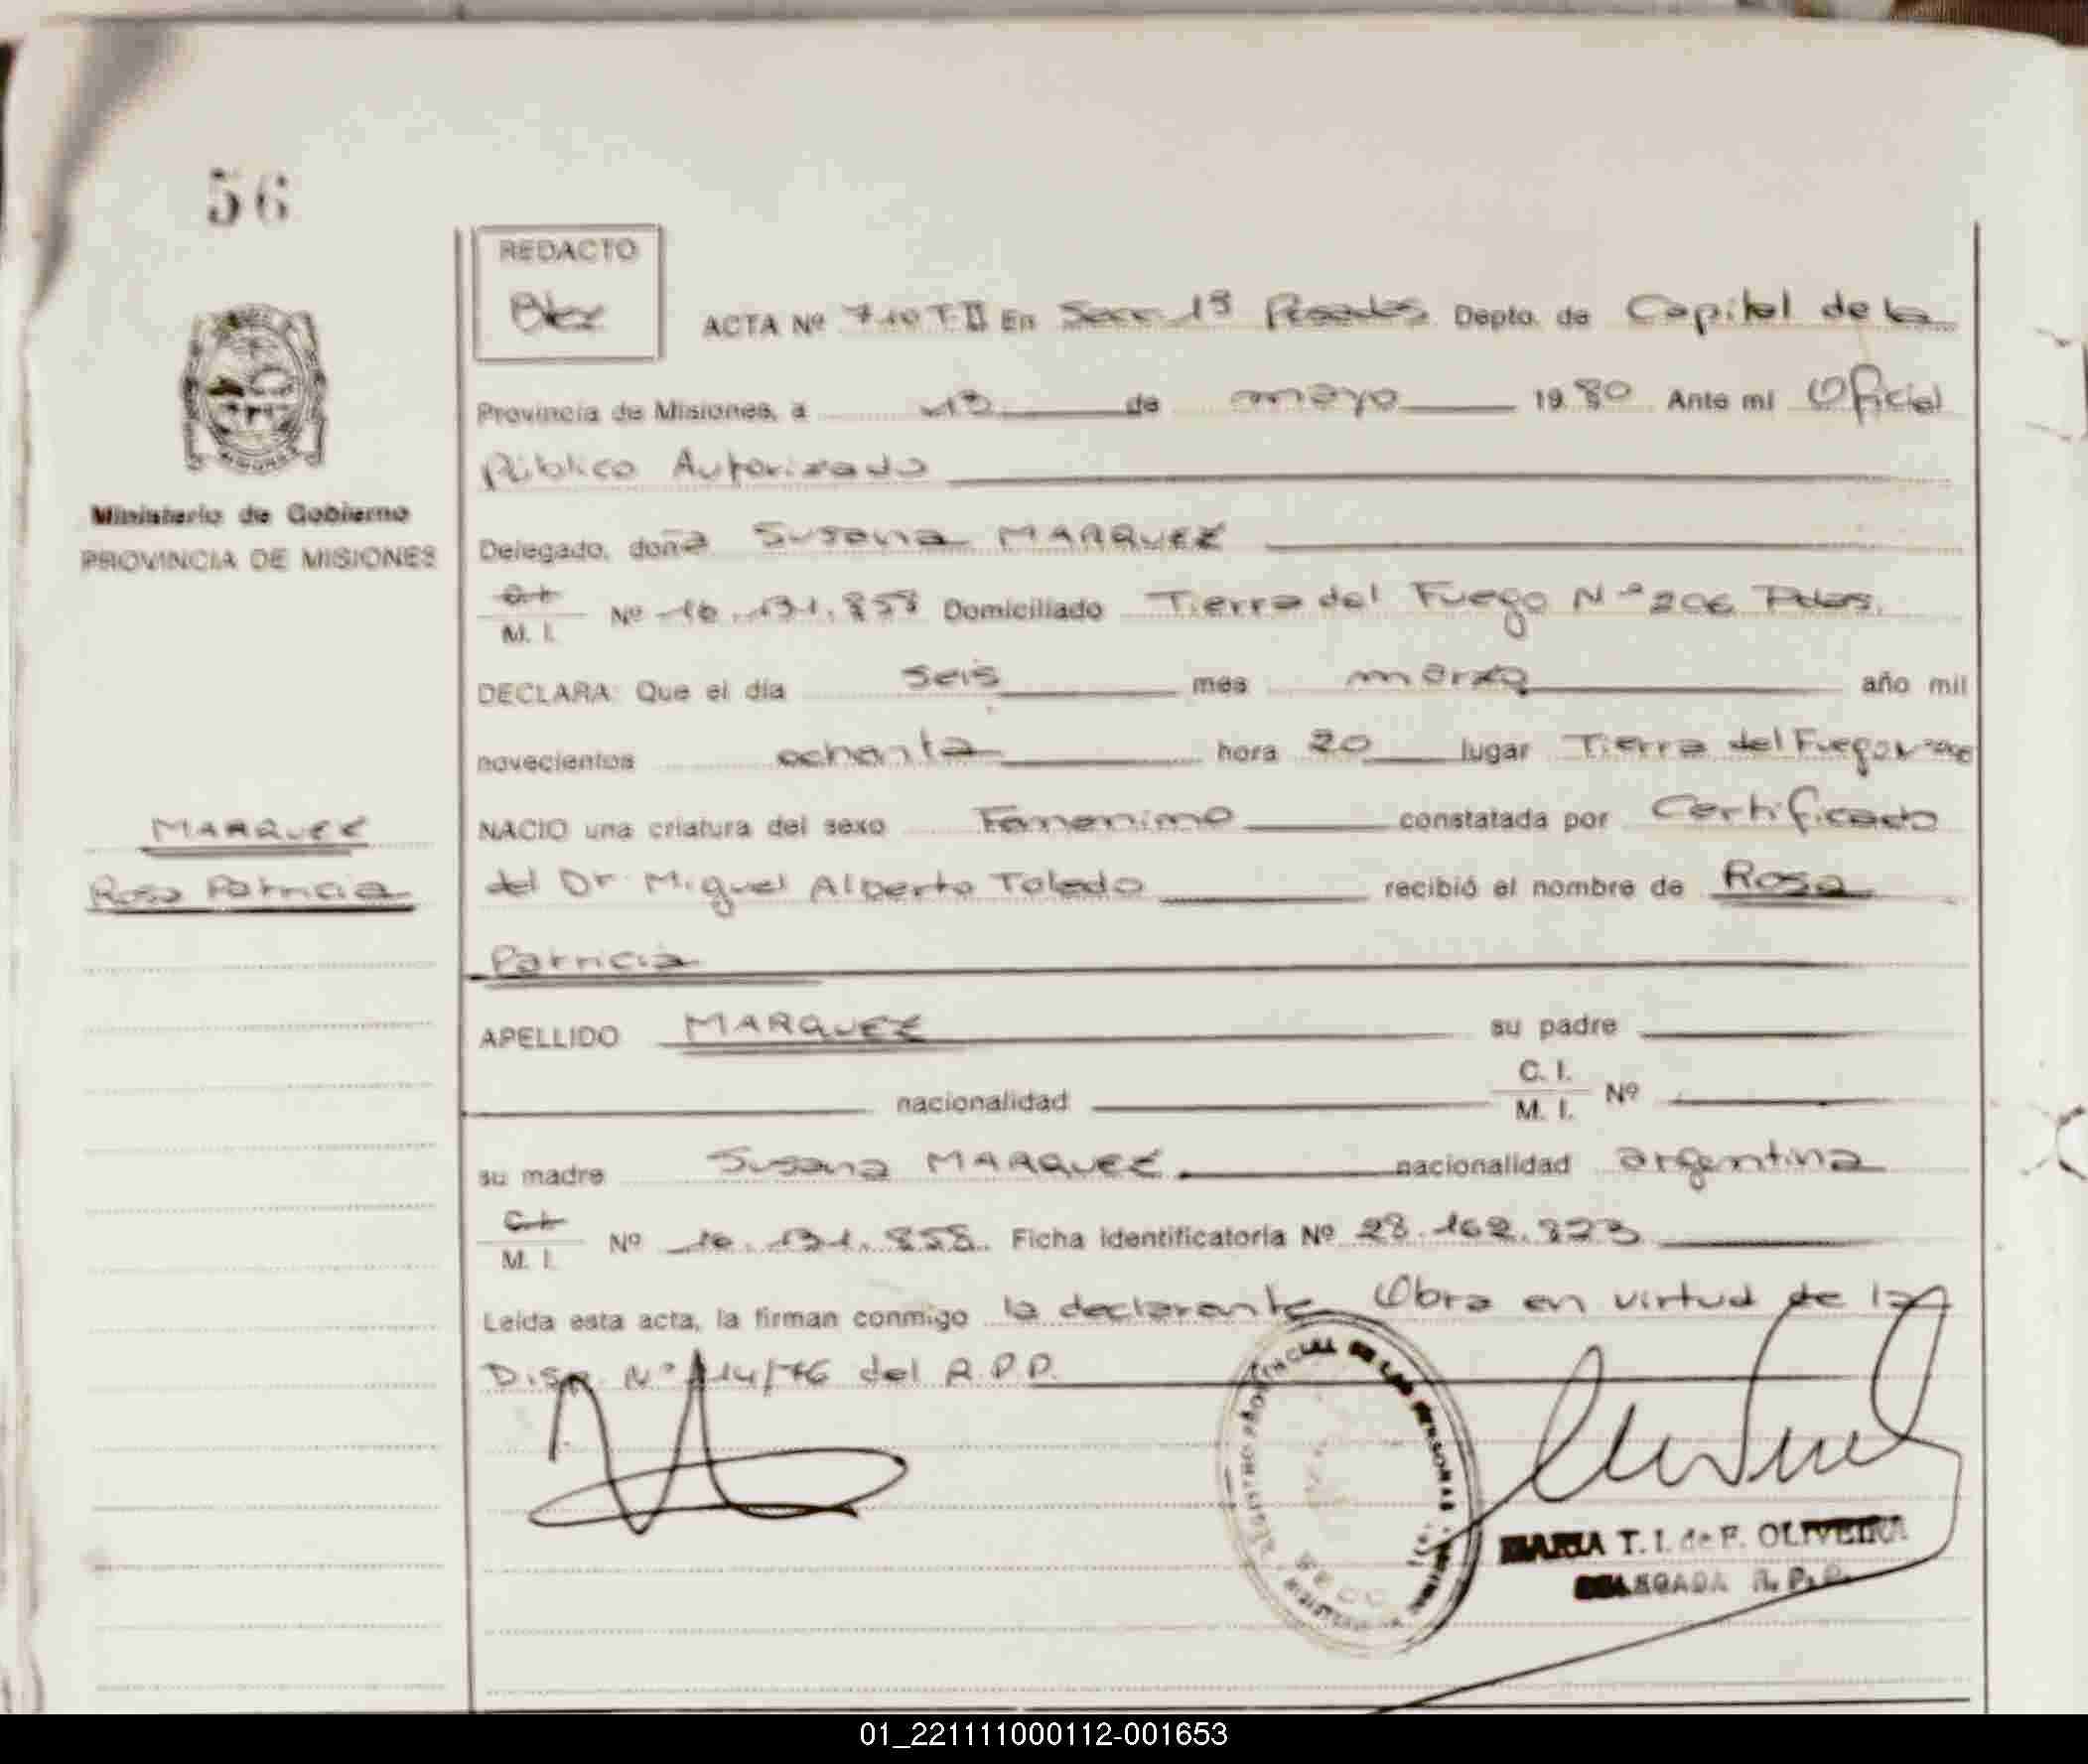 56
REDACTO
ACTA Nº 710 T-II En Secc 1ª Posadas Depto. de Capital de la
Provincia de Misiones, a 13 de mayo 1980 Ante mi Oficial
Público Autorizado
Ministerio de Gobierno
PROVINCIA DE MISIONES
Delegado, doña Susana MARQUEZ
C.I.
M. I. Nº 16.131.858 Domiciliado Tierra del Fuego Nº 206 Pdas.
DECLARA: Que el día seis mes marzo año mil
novecientos ochenta hora 20 lugar Tierra del Fuego Nº 206
NACIO una criatura del sexo Femenimo constatada por Certificado
MARQUEZ
del Dr. Miguel Alberto Toledo recibió el nombre de Rosa
Rosa Patricia
Patricia
APELLIDO MARQUEZ su padre
nacionalidad C. I.
M. I. Nº
su madre Susana MARQUEZ nacionalidad argentina
C.I.
M. I. Nº 16.131.858. Ficha identificatoria Nº 28.162.823
Leída esta acta, la firman conmigo la declarante Obra en virtud de la
Disp. Nº 114/76 del R.P.P.
REGISTRO PROVINCIAL DE LAS PERSONAS
MARIA T. I. de F. OLIVEIRA
DELEGADA R. P. P.
01_221111000112-001653